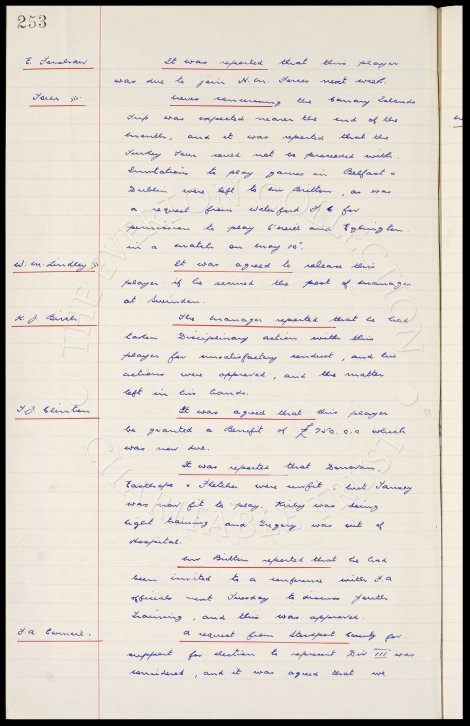 253
It was reported that this player
was due to join H.M. Forces next week.
Tours
News concerning the Canary Islands
Trip was expected nearer the end of the
month, and it was reported that the
Turkey Tour could not be proceeded with.
Invitations to play games in Belfast &
Dublin were left to Mr Britton, as was
a request from Waterford F.C for
permission to play O'Neill and Eglington
in a match on May 10
W. M. Lindley
It was agreed to release this
player if he secured the post of manager
at Swindon.
K. J. Birch
The manager reported that he had
taken Disciplinary action with this
player for unsatisfactory conduct, and his
actions were approved, and the matter
left in his hands.
T. J. Clinton
It was agreed that this player
be granted a Benefit of £750.0.0 which
was now due.
It was reported that Donovan,
Easthope & Fletcher were unfit, but Tansey
was now fit to play. Kirby was doing
light training and Gregory was out of
Hospital.
Mr Britton reported that he had
been invited to a conference with F.A
officials next Tuesday to discuss youth
Training, and this was approved.
F.A. Council.
A request from Stockport County for
support for election to represent Div III was
considered, and it was agreed that we
THE EVERTON COLLECTION
CHARITABLE TRUST